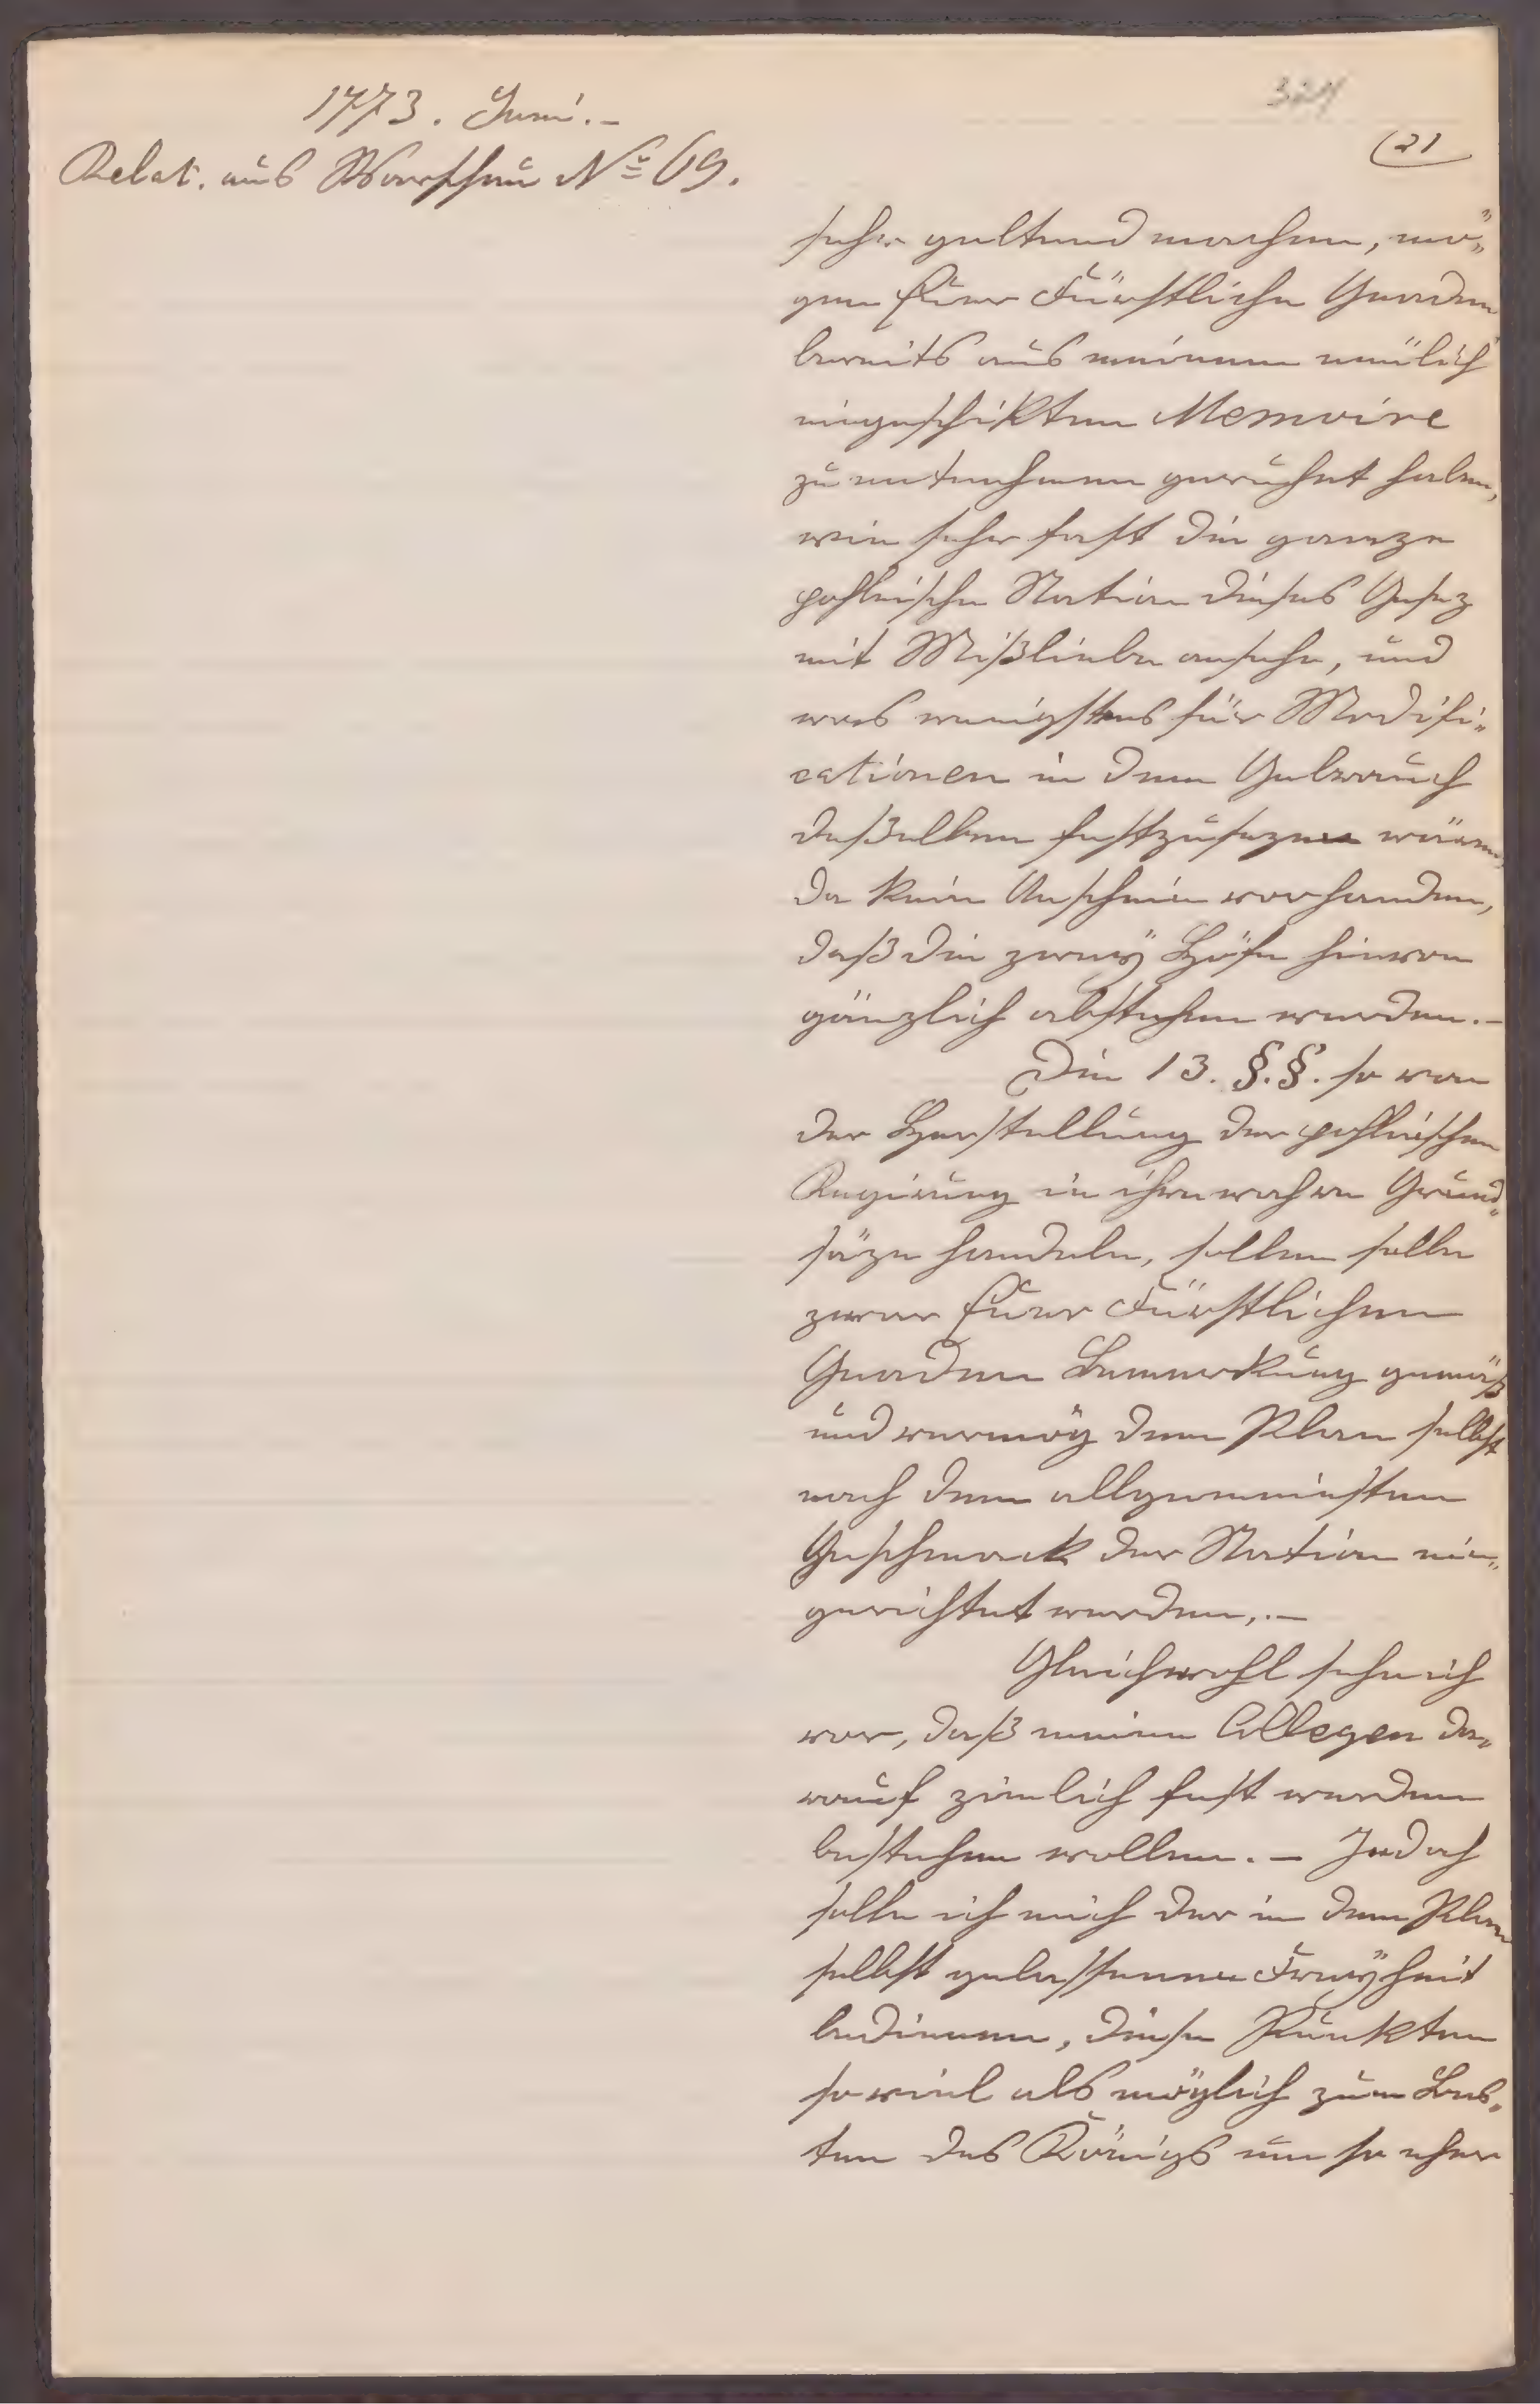 1773. Juni.-
Relat. aus Warschau No 69.
(21
sehr geltend machen, mö„
gen Euer Fürstliche Gnaden
bereits aus meinem neülich
eingeschikten Memoire
zu entnehmen geruhet haben,
wie sehr fast die ganze
pohlnische Nation dieses Gesez
mit Mißliebe ansehe, und
was wenigstens für Modifi„
cationen in dem Gebrauch
deßelben festzusezen wären,
da kein Anschein vorhanden,
daß die zweÿ Höfe hievon
gänzlich abstehen werden.-
Die 13. §.§. so von
der Herstellung der pohlnischen
Regirung in ihre wahren Grund„
säze handeln, sollen
zwar Euer Fürstlichen
Gnaden Bemerkung gemäß
und vermög dem Plan selbst
nach dem allgemeinsten
Geschmack der Nation ein„
gerichtet werden,.-
Gleichwohl sehe ich
vor, daß meine Collegen da„
rauf zimlich fest werden
bestehen wollen.- Jedoch
solle ich mich der in dem Plan
selbst gelassenen Freÿheit
bedienen, diese Punkten
so viel als möglich zum Bes„
ten des Königs um so eher